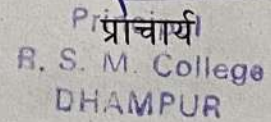 प्राचार्य
R. S. M. College
DHAMPUR